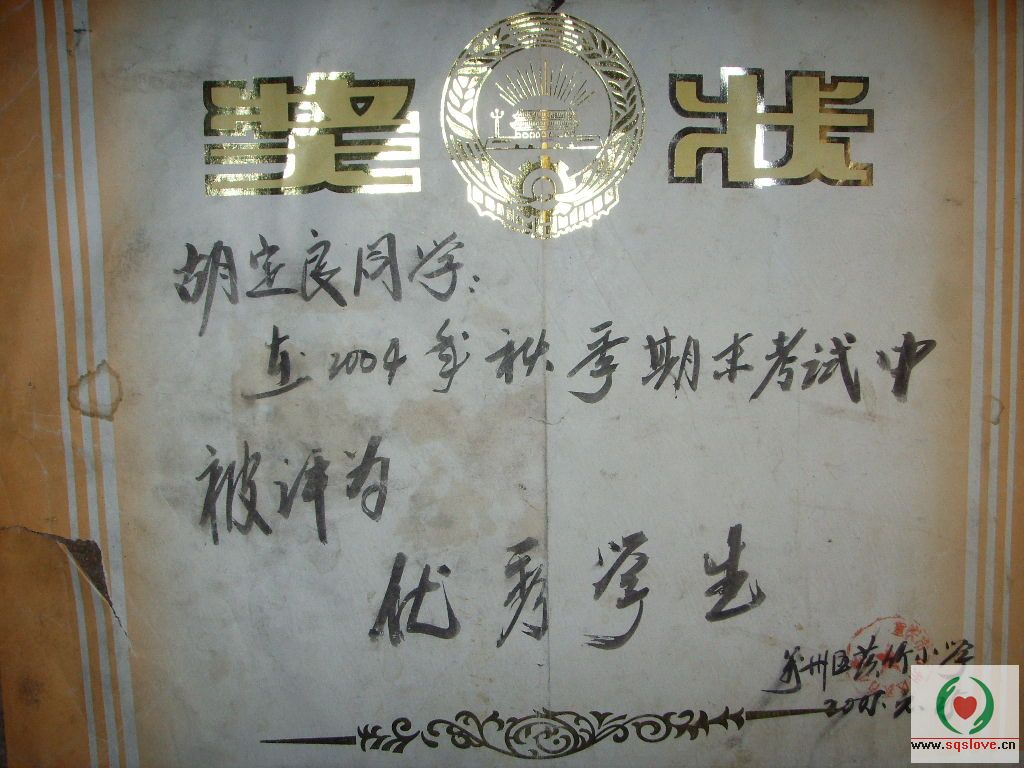 奖状
胡定良同学:
在2004年秋季期末考试中
被评为
优秀学生
州区 竹小学
2005.
www.sqslove.cn